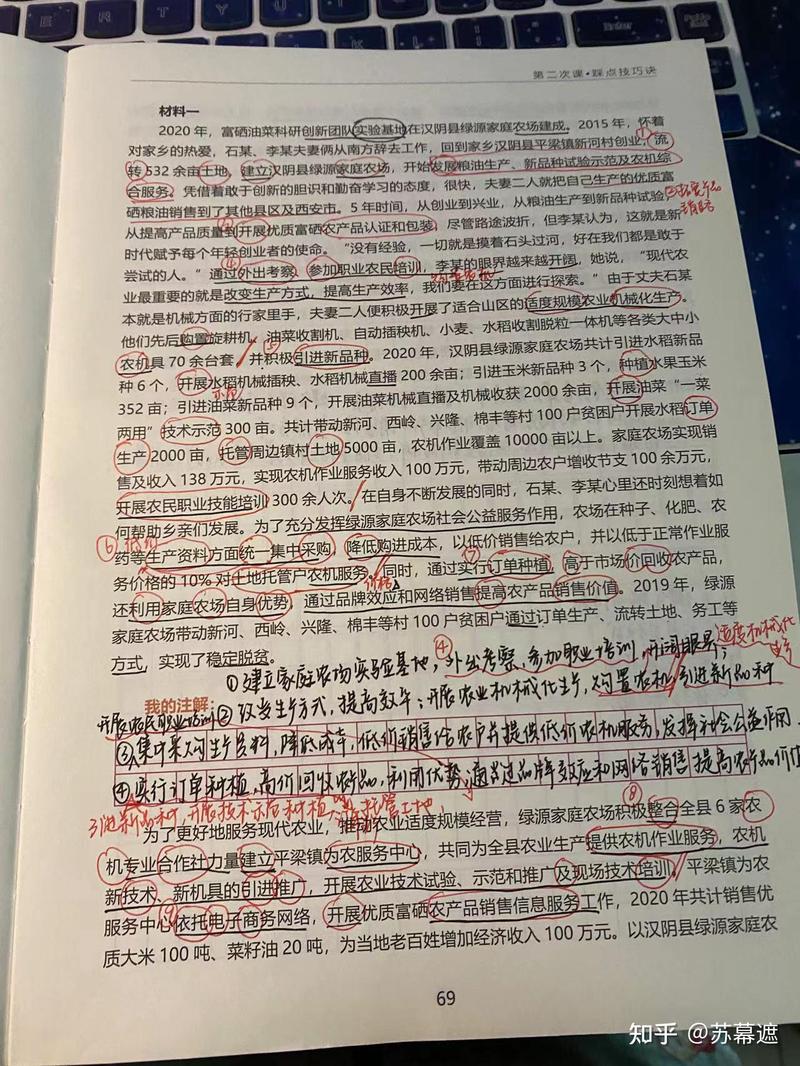 第二次课·踩点技巧诀
材料一
2020年，富硒油菜科研创新团队实验基地在汉阴县绿源家庭农场建成。2015年，怀着
对家乡的热爱，石某、李某夫妻俩从南方辞去工作，回到家乡汉阴县平梁镇新河村创业，流
转532余亩土地，建立汉阴县绿源家庭农场，开始发展粮油生产、新品种试验示范及农机综
合服务。凭借着敢于创新的胆识和勤奋学习的态度，很快，夫妻二人就把自己生产的优质富
硒粮油销售到了其他县区及西安市。5年时间，从创业到兴业，从粮油生产到新品种试验，
从提高产品质量到开展优质富硒农产品认证和包装，尽管路途波折，但李某认为，这就是新
时代赋予每个年轻创业者的使命。“没有经验，一切就是摸着石头过河，好在我们都是敢于
尝试的人。”通过外出考察，参加职业农民培训，李某的眼界越来越开阔，她说，“现代农
业最重要的就是改变生产方式，提高生产效率，我们要在这方面进行探索。”由于丈夫石某
本就是机械方面的行家里手，夫妻二人便积极开展了适合山区的适度规模农业机械化生产。
他们先后购置旋耕机、油菜收割机、自动插秧机、小麦、水稻收割脱粒一体机等各类大中小
农机具70余台套，并积极引进新品种。2020年，汉阴县绿源家庭农场共计引进水稻新品
种6个，开展水稻机械插秧、水稻机械直播200余亩；引进玉米新品种3个，种植水果玉米
352亩；引进油菜新品种9个，开展油菜机械直播及机械收获2000余亩，开展油菜“一菜
两用”技术示范300亩。共计带动新河、西岭、兴隆、棉丰等村100户贫困户开展水稻订单
生产2000亩，托管周边镇村土地5000亩，农机作业覆盖10000亩以上。家庭农场实现销
售及收入138万元，实现农机作业服务收入100万元，带动周边农户增收节支100余万元，
开展农民职业技能培训300余人次。在自身不断发展的同时，石某、李某心里还时刻想着如
何帮助乡亲们发展。为了充分发挥绿源家庭农场社会公益服务作用，农场在种子、化肥、农
药等生产资料方面统一集中采购，降低购进成本，以低价销售给农户，并以低于正常作业服
务价格的10%对土地托管户农机服务。同时，通过实行订单种植，高于市场价回收农产品，
还利用家庭农场自身优势，通过品牌效应和网络销售提高农产品销售价值。2019年，绿源
家庭农场带动新河、西岭、兴隆、棉丰等村100户贫困户通过订单生产、流转土地、务工等
方式，实现了稳定脱贫。
①建立家庭农场实验基地，外出考察，参加职业培训，开阔眼界；
我的注解：
开展农民职业培训②改变生产方式，提高效率；开展农业机械化生产，购置农机，引进新品种
③集中采购生产资料，降低成本，低价销售给农户并提供低价农机服务，发挥社会公益作用
④实行订单种植，高价回收农产品，利用优势，通过品牌效应和网络销售提高农产品价值
引进新品种，开展技术示范种植
为了更好地服务现代农业，推动农业适度规模经营，绿源家庭农场积极整合全县6家农
机专业合作社力量建立平梁镇为农服务中心，共同为全县农业生产提供农机作业服务，农机
新技术、新机具的引进推广，开展农业技术试验、示范和推广及现场技术培训。平梁镇为农
服务中心依托电子商务网络，开展优质富硒农产品销售信息服务工作，2020年共计销售优
质大米100吨、菜籽油20吨，为当地老百姓增加经济收入100万元。以汉阴县绿源家庭农
69
知乎 @苏幕遮